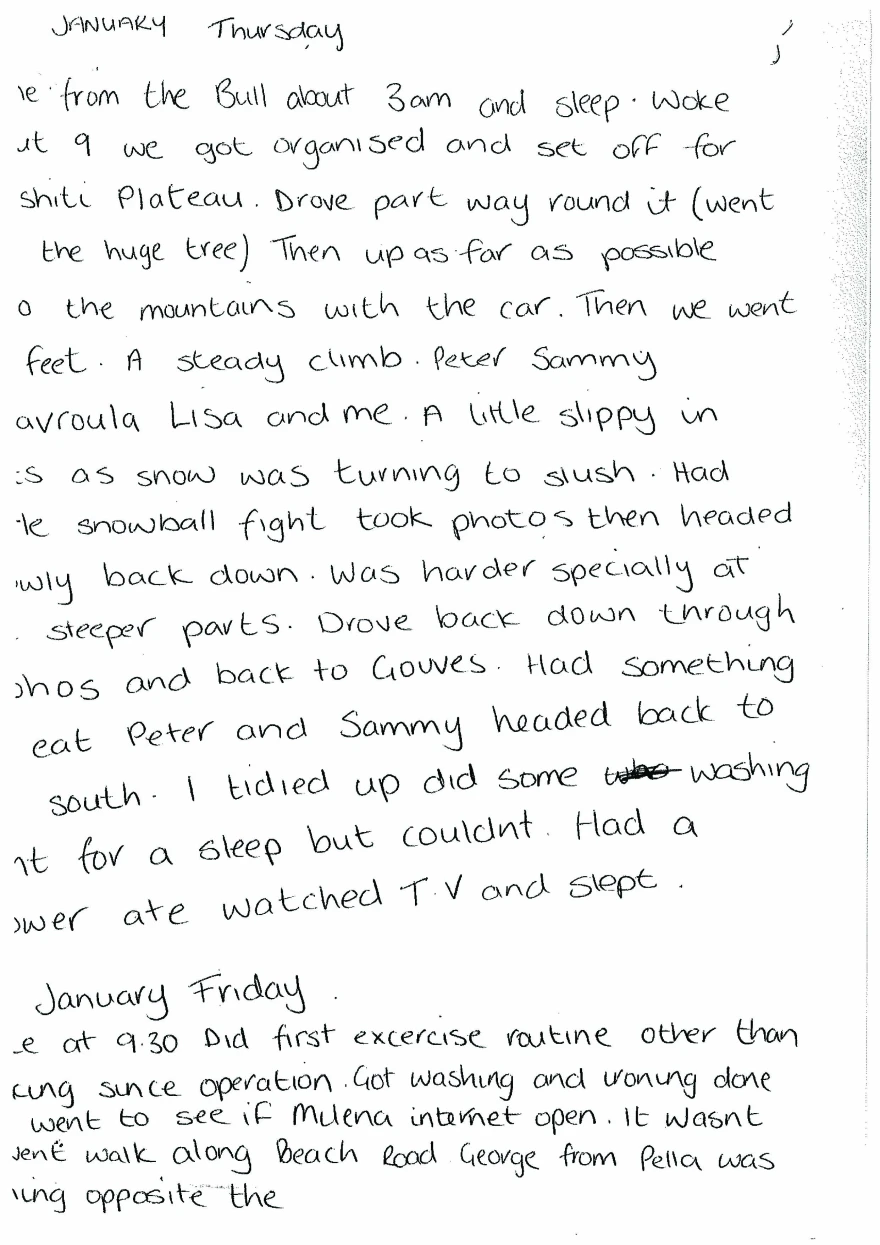 JANUARY Thursday
ie from the Bull about 3am and sleep. Woke
ut 9 we got organised and set off for
shiti Plateau. Drove part way round it (went
the huge tree) Then up as far as possible
o the mountains with the car. Then we went
feet. A steady climb. Peter Sammy
avroula Lisa and me. A little slippy in
s as snow was turning to slush. Had
le snowball fight took photos then headed
wly back down. Was harder specially at
steeper parts. Drove back down through
hos and back to Gouves. Had something
eat Peter and Sammy headed back to
south. I tidied up did some washing
nt for a sleep but couldnt. Had a
ower ate watched T.V and slept.
January Friday.
e at 9.30 Did first excercise routine other than
king since operation. Got washing and ironing done
went to see if Milena internet open. It wasnt
went walk along Beach Road George from Pella was
ing opposite the